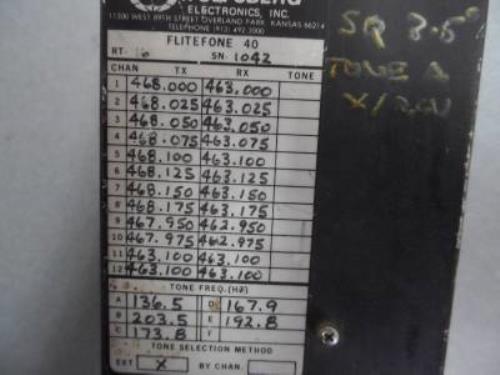 ELECTRONICS, INC.
11300 WEST 89TH STREET OVERLAND PARK, KANSAS 66214
TELEPHONE (913) 492-3000
FLITEFONE 40
RT- 16 SN- 1042
CHAN TX RX TONE
1 468.000 463.000
2 468.025 463.025
3 468.050 463.050
4 468.075 463.075
5 468.100 463.100
6 468.125 463.125
7 468.150 463.150
8 468.175 463.175
9 467.950 462.950
10 467.975 462.975
11 463.100 463.100
12 463.100 463.100
TONE FREQ. (HZ)
A 136.5 D 167.9
B 203.5 E 192.8
C 173.8 F
TONE SELECTION METHOD
EXT X BY CHAN.
SQ
TONE A